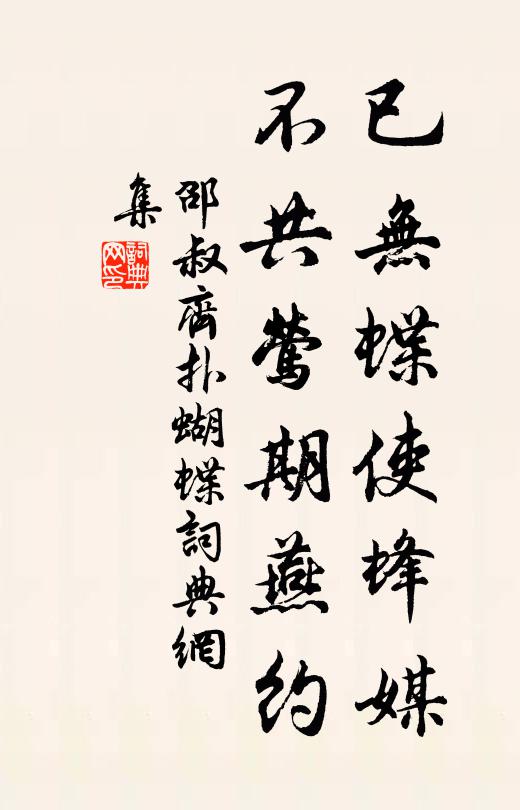 已無蝶使蜂媒
不共鶯期燕約
邵叔齊撲蝴蝶詞典網
集
詞典網印